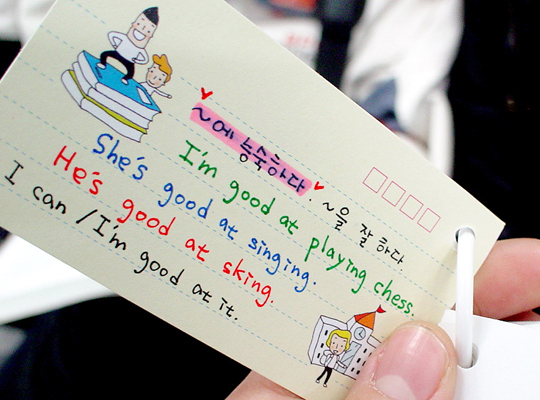 ~에 능숙하다. ~을 잘 하다.
I'm good at playing chess.
She's good at singing.
He's good at sking.
I can / I'm good at it.